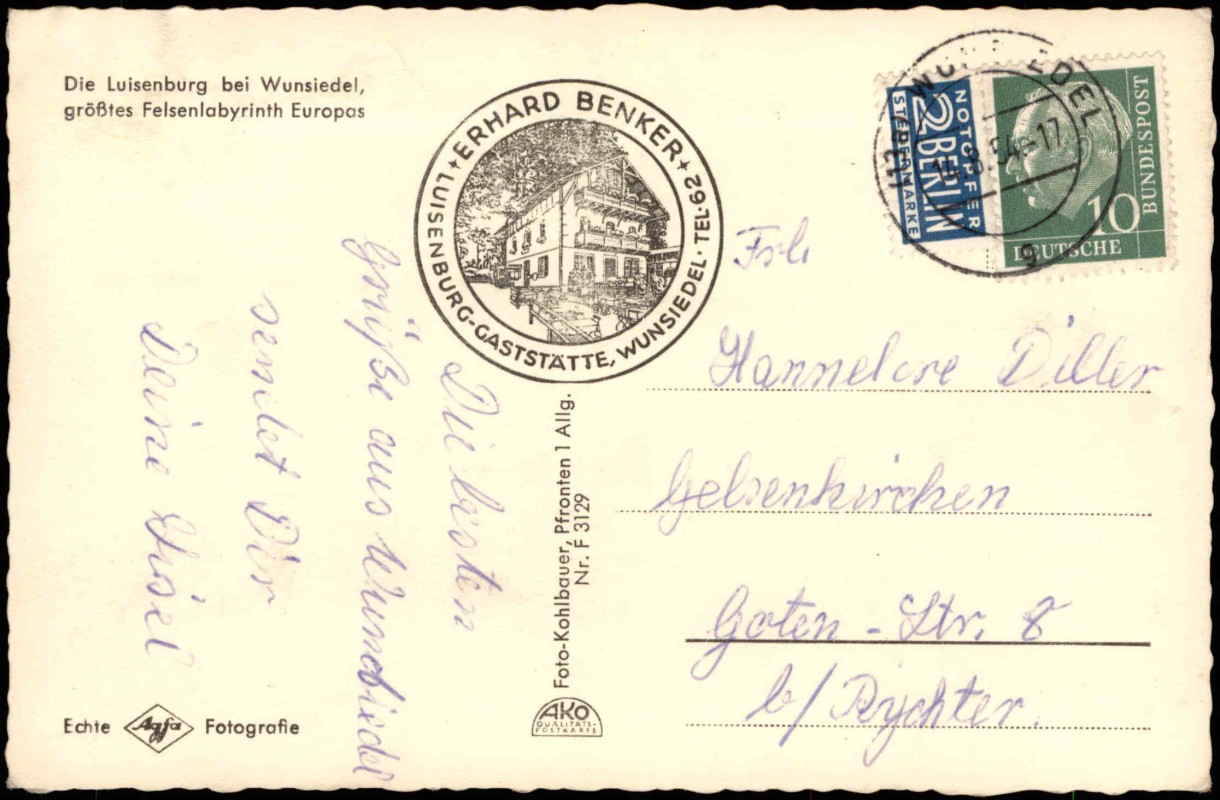 Die Luisenburg bei Wunsiedel,
größtes Felsenlabyrinth Europas
ERHARD BENKER
LUISENBURG-GASTSTÄTTE, WUNSIEDEL · TEL·62
NOTOPFER
2 BERLIN
STEUERMARKE
DEUTSCHE
BUNDESPOST
10
14.8.54-17
g
Die besten
Grüße aus Wunsiedel
sendet Dir
Deine Liesel
Frl.
Hannelore Diller
Gelsenkirchen
Goten-Str. 8
b/ Rychter.
Foto-Kohlbauer, Pfronten 1 Allg.
Nr. F 3129
AKO
QUALITÄTS-
POSTKARTE
Echte Agfa Fotografie